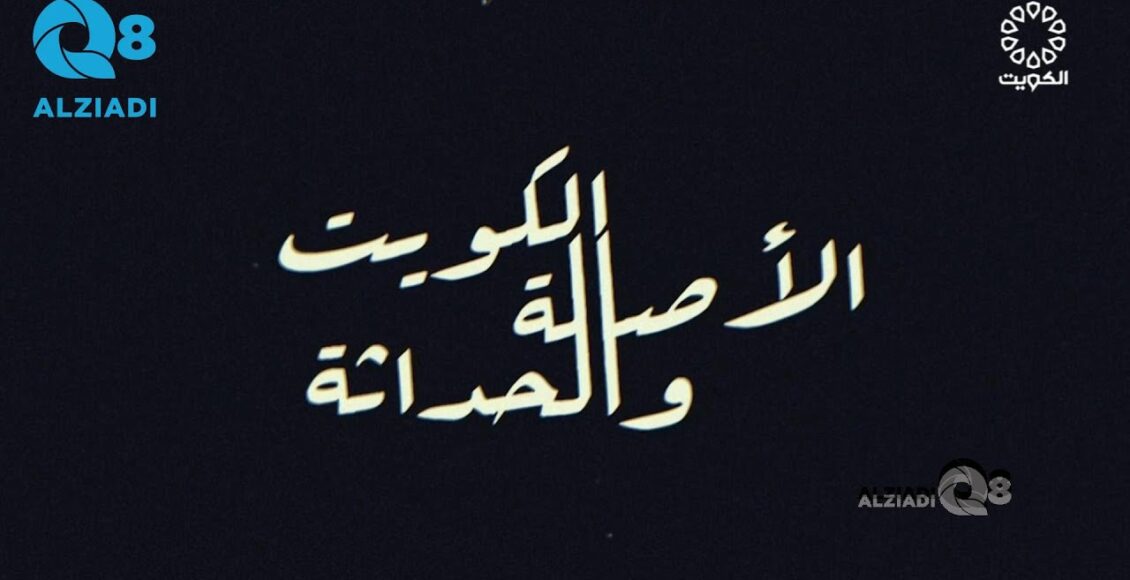 Q8
ALZIADI
الكويت
الكويت
الأصالة
والحداثة
ALZIADI Q8